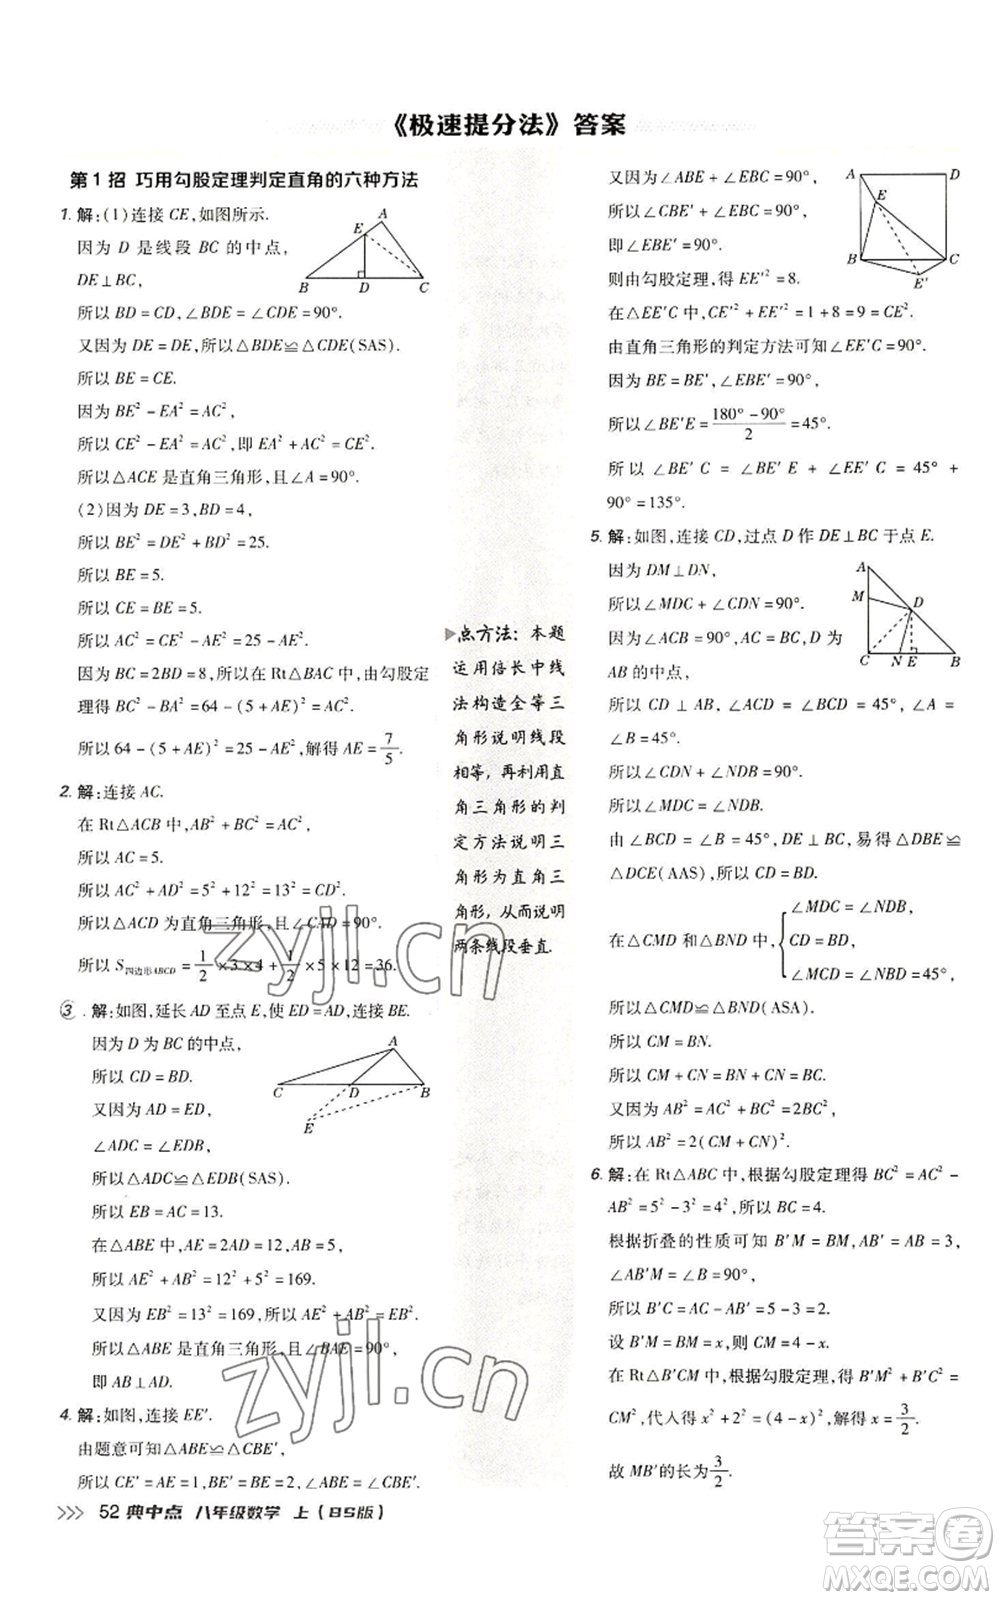 《极速提分法》答案
第1招 巧用勾股定理判定直角的六种方法
1. 解:(1)连接 CE,如图所示.
因为 D 是线段 BC 的中点,
DE⊥BC,
所以 BD=CD,∠BDE=∠CDE=90°.
又因为 DE=DE,所以△BDE≌△CDE(SAS).
所以 BE=CE.
因为 BE²-EA²=AC²,
所以 CE²-EA²=AC²,即 EA²+AC²=CE².
所以△ACE是直角三角形,且∠A=90°.
(2)因为 DE=3,BD=4,
所以 BE²=DE²+BD²=25.
所以 BE=5.
所以 CE=BE=5.
所以 AC²=CE²-AE²=25-AE².
因为 BC=2BD=8,所以在 Rt△BAC 中,由勾股定
理得 BC²-BA²=64-(5+AE)²=AC².
所以 64-(5+AE)²=25-AE²,解得 AE=7/5.
2. 解:连接 AC.
在 Rt△ACB 中,AB²+BC²=AC²,
所以 AC=5.
所以 AC²+AD²=5²+12²=13²=CD².
所以△ACD 为直角三角形,且∠CAD=90°.
所以 S四边形ABCD=1/2×3×4+1/2×5×12=36.
3. 解:如图,延长 AD 至点 E,使 ED=AD,连接 BE.
因为 D 为 BC 的中点,
所以 CD=BD.
又因为 AD=ED,
∠ADC=∠EDB,
所以△ADC≌△EDB(SAS).
所以 EB=AC=13.
在△ABE 中,AE=2AD=12,
所以 AE²+AB²=12²+5²=169.
又因为 EB²=13²=169,所以 AE²+AB²=EB².
所以△ABE 是直角三角形,且∠BAE=90°,
即 AB⊥AD.
4. 解:如图,连接 EE′.
由题意可知△ABE≌△CBE′,
所以 CE′=AE=1,BE′=BE=2,∠ABE=∠CBE′.
A
E
B D C
A
C D B
E
▶点方法:本题
运用倍长中线
法构造全等三
角形说明线段
相等,再利用直
角三角形的判
定方法说明三
角形为直角三
角形,从而说明
两条线段垂直.
又因为∠ABE+∠EBC=90°,
所以∠CBE′+∠EBC=90°,
即∠EBE′=90°.
则由勾股定理,得 EE′²=8.
在△EE′C 中,CE′²+EE′²=1+8=9=CE².
由直角三角形的判定方法可知∠EE′C=90°.
因为 BE=BE′,∠EBE′=90°,
所以∠BE′E=(180°-90°)/2=45°.
所以∠BE′C=∠BE′E+∠EE′C=45°+
90°=135°.
5. 解:如图,连接 CD,过点 D 作 DE⊥BC 于点 E.
因为 DM⊥DN,
所以∠MDC+∠CDN=90°.
因为∠ACB=90°,AC=BC,D 为
AB 的中点,
所以 CD⊥AB,∠ACD=∠BCD=45°,∠A=
∠B=45°.
所以∠CDN+∠NDB=90°.
所以∠MDC=∠NDB.
由∠BCD=∠B=45°,DE⊥BC,易得△DBE≌
△DCE(AAS),所以 CD=BD.
在△CMD 和△BND 中,{∠MDC=∠NDB,
CD=BD,
∠MCD=∠NBD=45°,
所以△CMD≌△BND(ASA).
所以 CM=BN.
所以 CM+CN=BN+CN=BC.
又因为 AB²=AC²+BC²=2BC²,
所以 AB²=2(CM+CN)².
6. 解:在 Rt△ABC 中,根据勾股定理得 BC²=AC²-
AB²=5²-3²=4²,所以 BC=4.
根据折叠的性质可知 B′M=BM,AB′=AB=3,
∠AB′M=∠B=90°,
所以 B′C=AC-AB′=5-3=2.
设 B′M=BM=x,则 CM=4-x.
在 Rt△B′CM 中,根据勾股定理,得 B′M²+B′C²=
CM²,代入得 x²+2²=(4-x)²,解得 x=3/2.
故 MB′的长为3/2.
A D
E
B C
E′
A
M D
C N E B
>>> 52 典中点 八年级数学 上(BS版)
zyjl.cn
zyjl.cn
答案圈
MXQE.COM